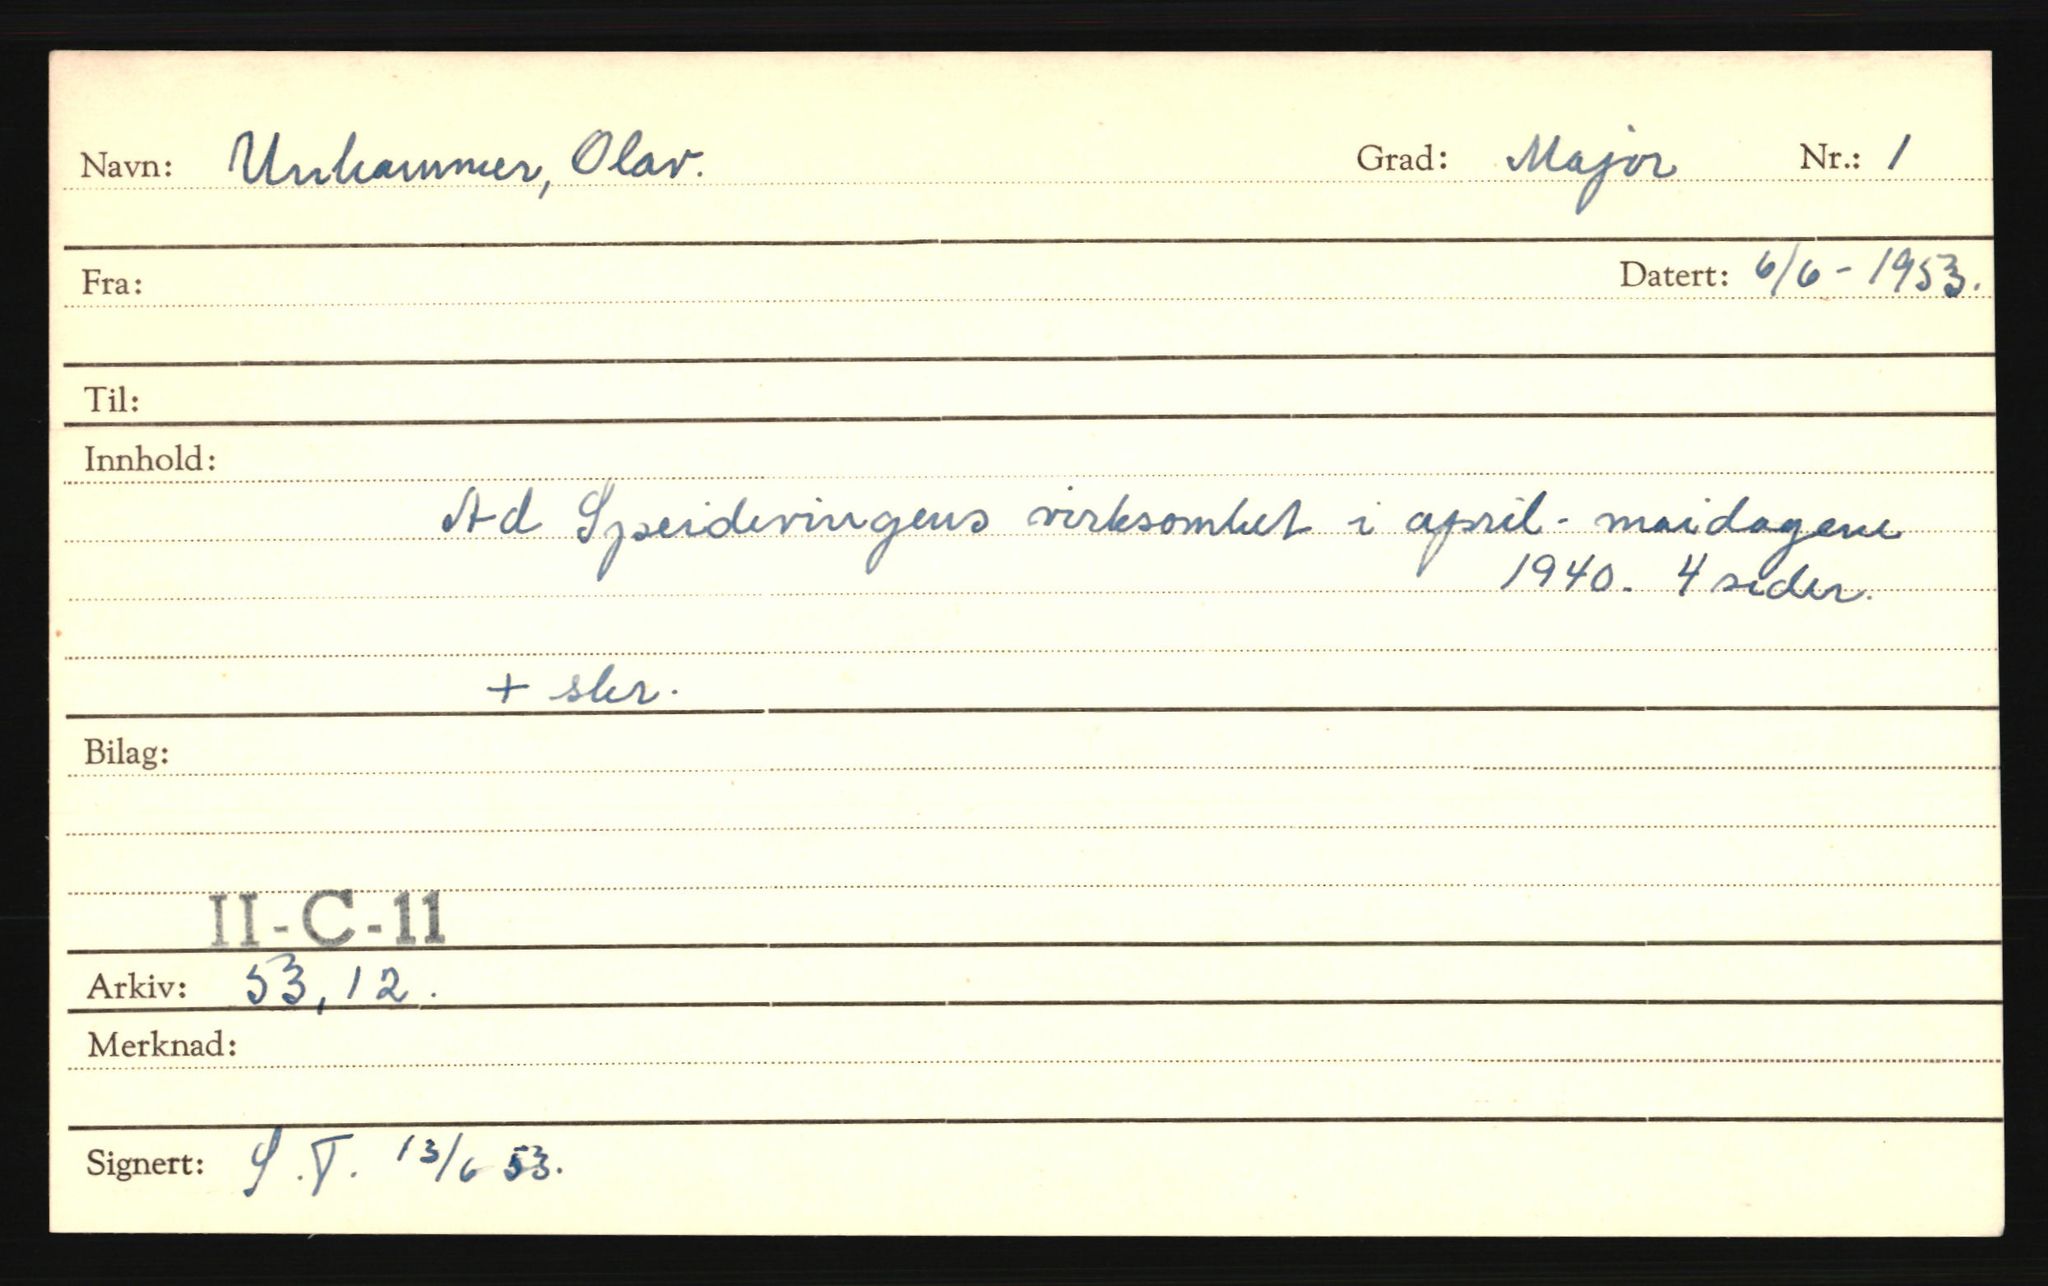 Navn: Unhammer, Olav. Grad: Major Nr.: 1
Fra: Datert: 6/6-1953.
Til:
Innhold:
Ad Speidevingens virksomhet i april-maidagene
1940. 4 sider.
+ skr.
Bilag:
II-C-11
Arkiv: 53,12.
Merknad:
Signert: S.T. 13/6 53.